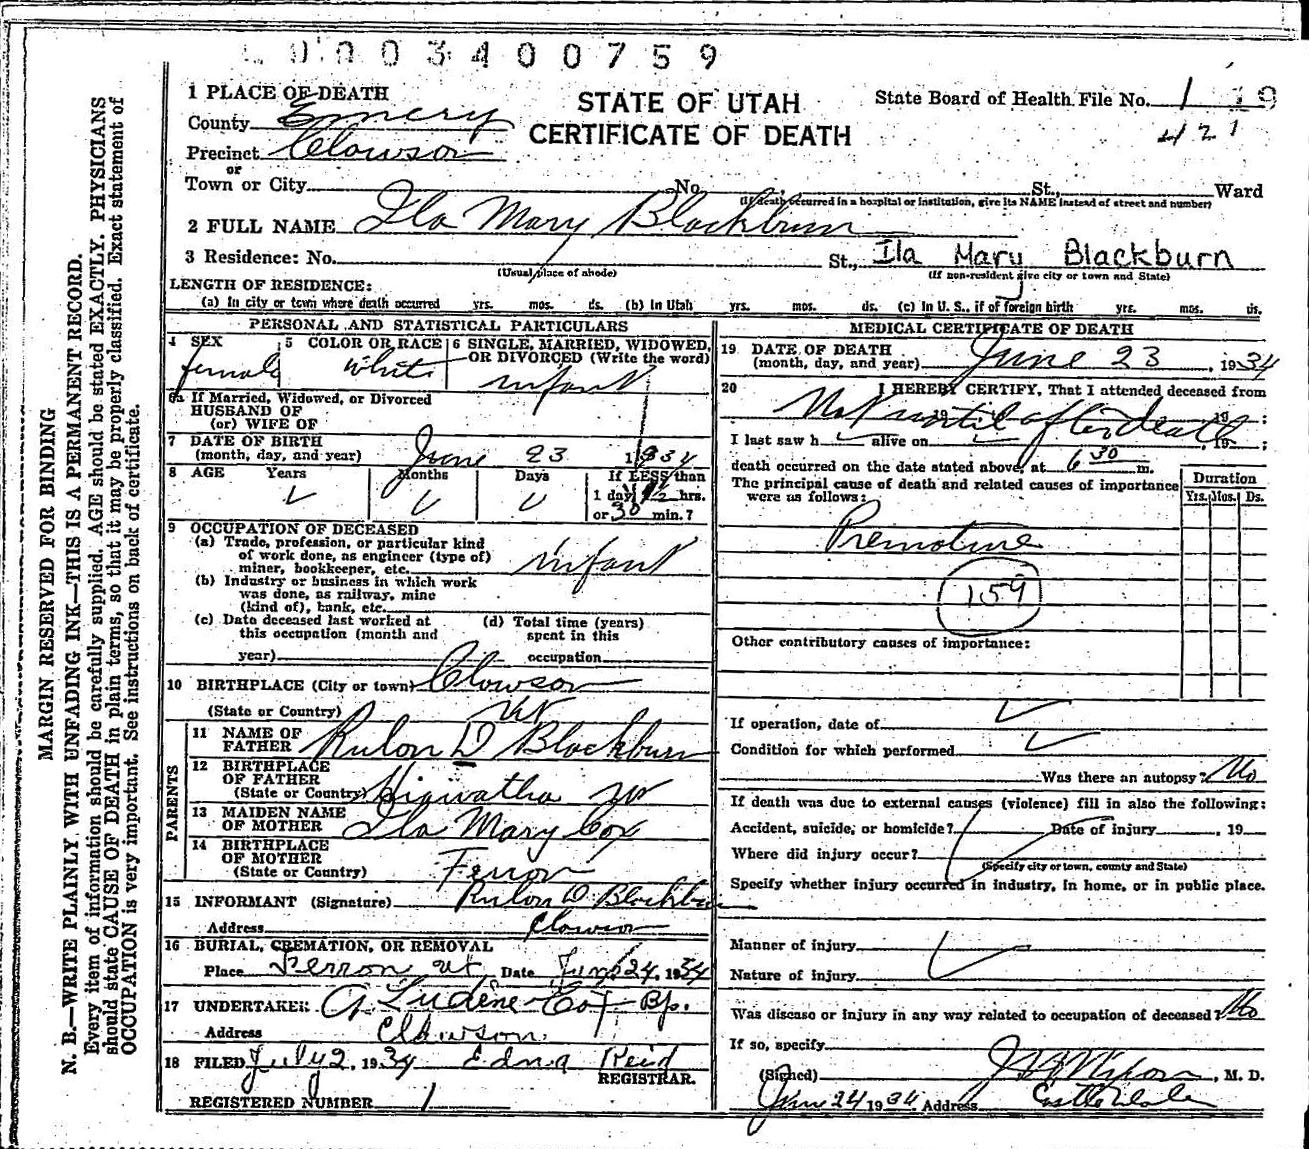 0003400759
1 PLACE OF DEATH
STATE OF UTAH
CERTIFICATE OF DEATH
State Board of Health File No. 1 19
421
County Emery
Precinct Clawson
or
Town or City No. St., Ward
(If death occurred in a hospital or institution, give its NAME instead of street and number)
2 FULL NAME Ila Mary Blackburn
3 Residence: No. St., Ila Mary Blackburn
(Usual place of abode) (If non-resident give city or town and State)
LENGTH OF RESIDENCE:
(a) In city or town where death occurred yrs. mos. ds. (b) In Utah yrs. mos. ds. (c) In U. S., if of foreign birth yrs. mos. ds.
PERSONAL AND STATISTICAL PARTICULARS
4 SEX female
5 COLOR OR RACE white
6 SINGLE, MARRIED, WIDOWED, OR DIVORCED (Write the word) infant
6a If Married, Widowed, or Divorced
HUSBAND OF
(or) WIFE OF
7 DATE OF BIRTH
(month, day, and year) June 23 1934
8 AGE Years Months Days If LESS than
1 day, hrs.
or 30 min.?
9 OCCUPATION OF DECEASED
(a) Trade, profession, or particular kind
of work done, as engineer (type of)
miner, bookkeeper, etc. infant
(b) Industry or business in which work
was done, as railway, mine
(kind of), bank, etc.
(c) Date deceased last worked at
this occupation (month and
year)
(d) Total time (years)
spent in this
occupation
10 BIRTHPLACE (City or town) Clawson
(State or Country) Ut
PARENTS
11 NAME OF
FATHER Rulon D Blackburn
12 BIRTHPLACE
OF FATHER
(State or Country) Hiawatha Ut
13 MAIDEN NAME
OF MOTHER Ila Mary Cox
14 BIRTHPLACE
OF MOTHER
(State or Country) Ferron
15 INFORMANT (Signature) Rulon D Blackburn
Address Clawson
16 BURIAL, CREMATION, OR REMOVAL
Place Ferron Ut Date June 24, 1934
17 UNDERTAKER A Ludene Cox Bp.
Address Clawson
18 FILED July 2, 1934 Edna Reid
REGISTRAR.
REGISTERED NUMBER 1
MEDICAL CERTIFICATE OF DEATH
19 DATE OF DEATH
(month, day, and year) June 23, 1934
20 I HEREBY CERTIFY, That I attended deceased from
Not until after death 19 :
I last saw h alive on 19 ;
death occurred on the date stated above, at 6 30 m.
The principal cause of death and related causes of importance
were as follows:
Duration
Yrs. Mos. Ds.
Premature
159
Other contributory causes of importance:
If operation, date of
Condition for which performed
Was there an autopsy? No
If death was due to external causes (violence) fill in also the following:
Accident, suicide, or homicide? Date of injury , 19
Where did injury occur?
(Specify city or town, county and State)
Specify whether injury occurred in industry, in home, or in public place.
Manner of injury
Nature of injury
Was disease or injury in any way related to occupation of deceased? No
If so, specify
(Signed) , M. D.
June 24 1934 Address Castle Dale
MARGIN RESERVED FOR BINDING
N. B.—WRITE PLAINLY WITH UNFADING INK—THIS IS A PERMANENT RECORD.
Every item of information should be carefully supplied. AGE should be stated EXACTLY. PHYSICIANS
should state CAUSE OF DEATH in plain terms, so that it may be properly classified. Exact statement of
OCCUPATION is very important. See instructions on back of certificate.